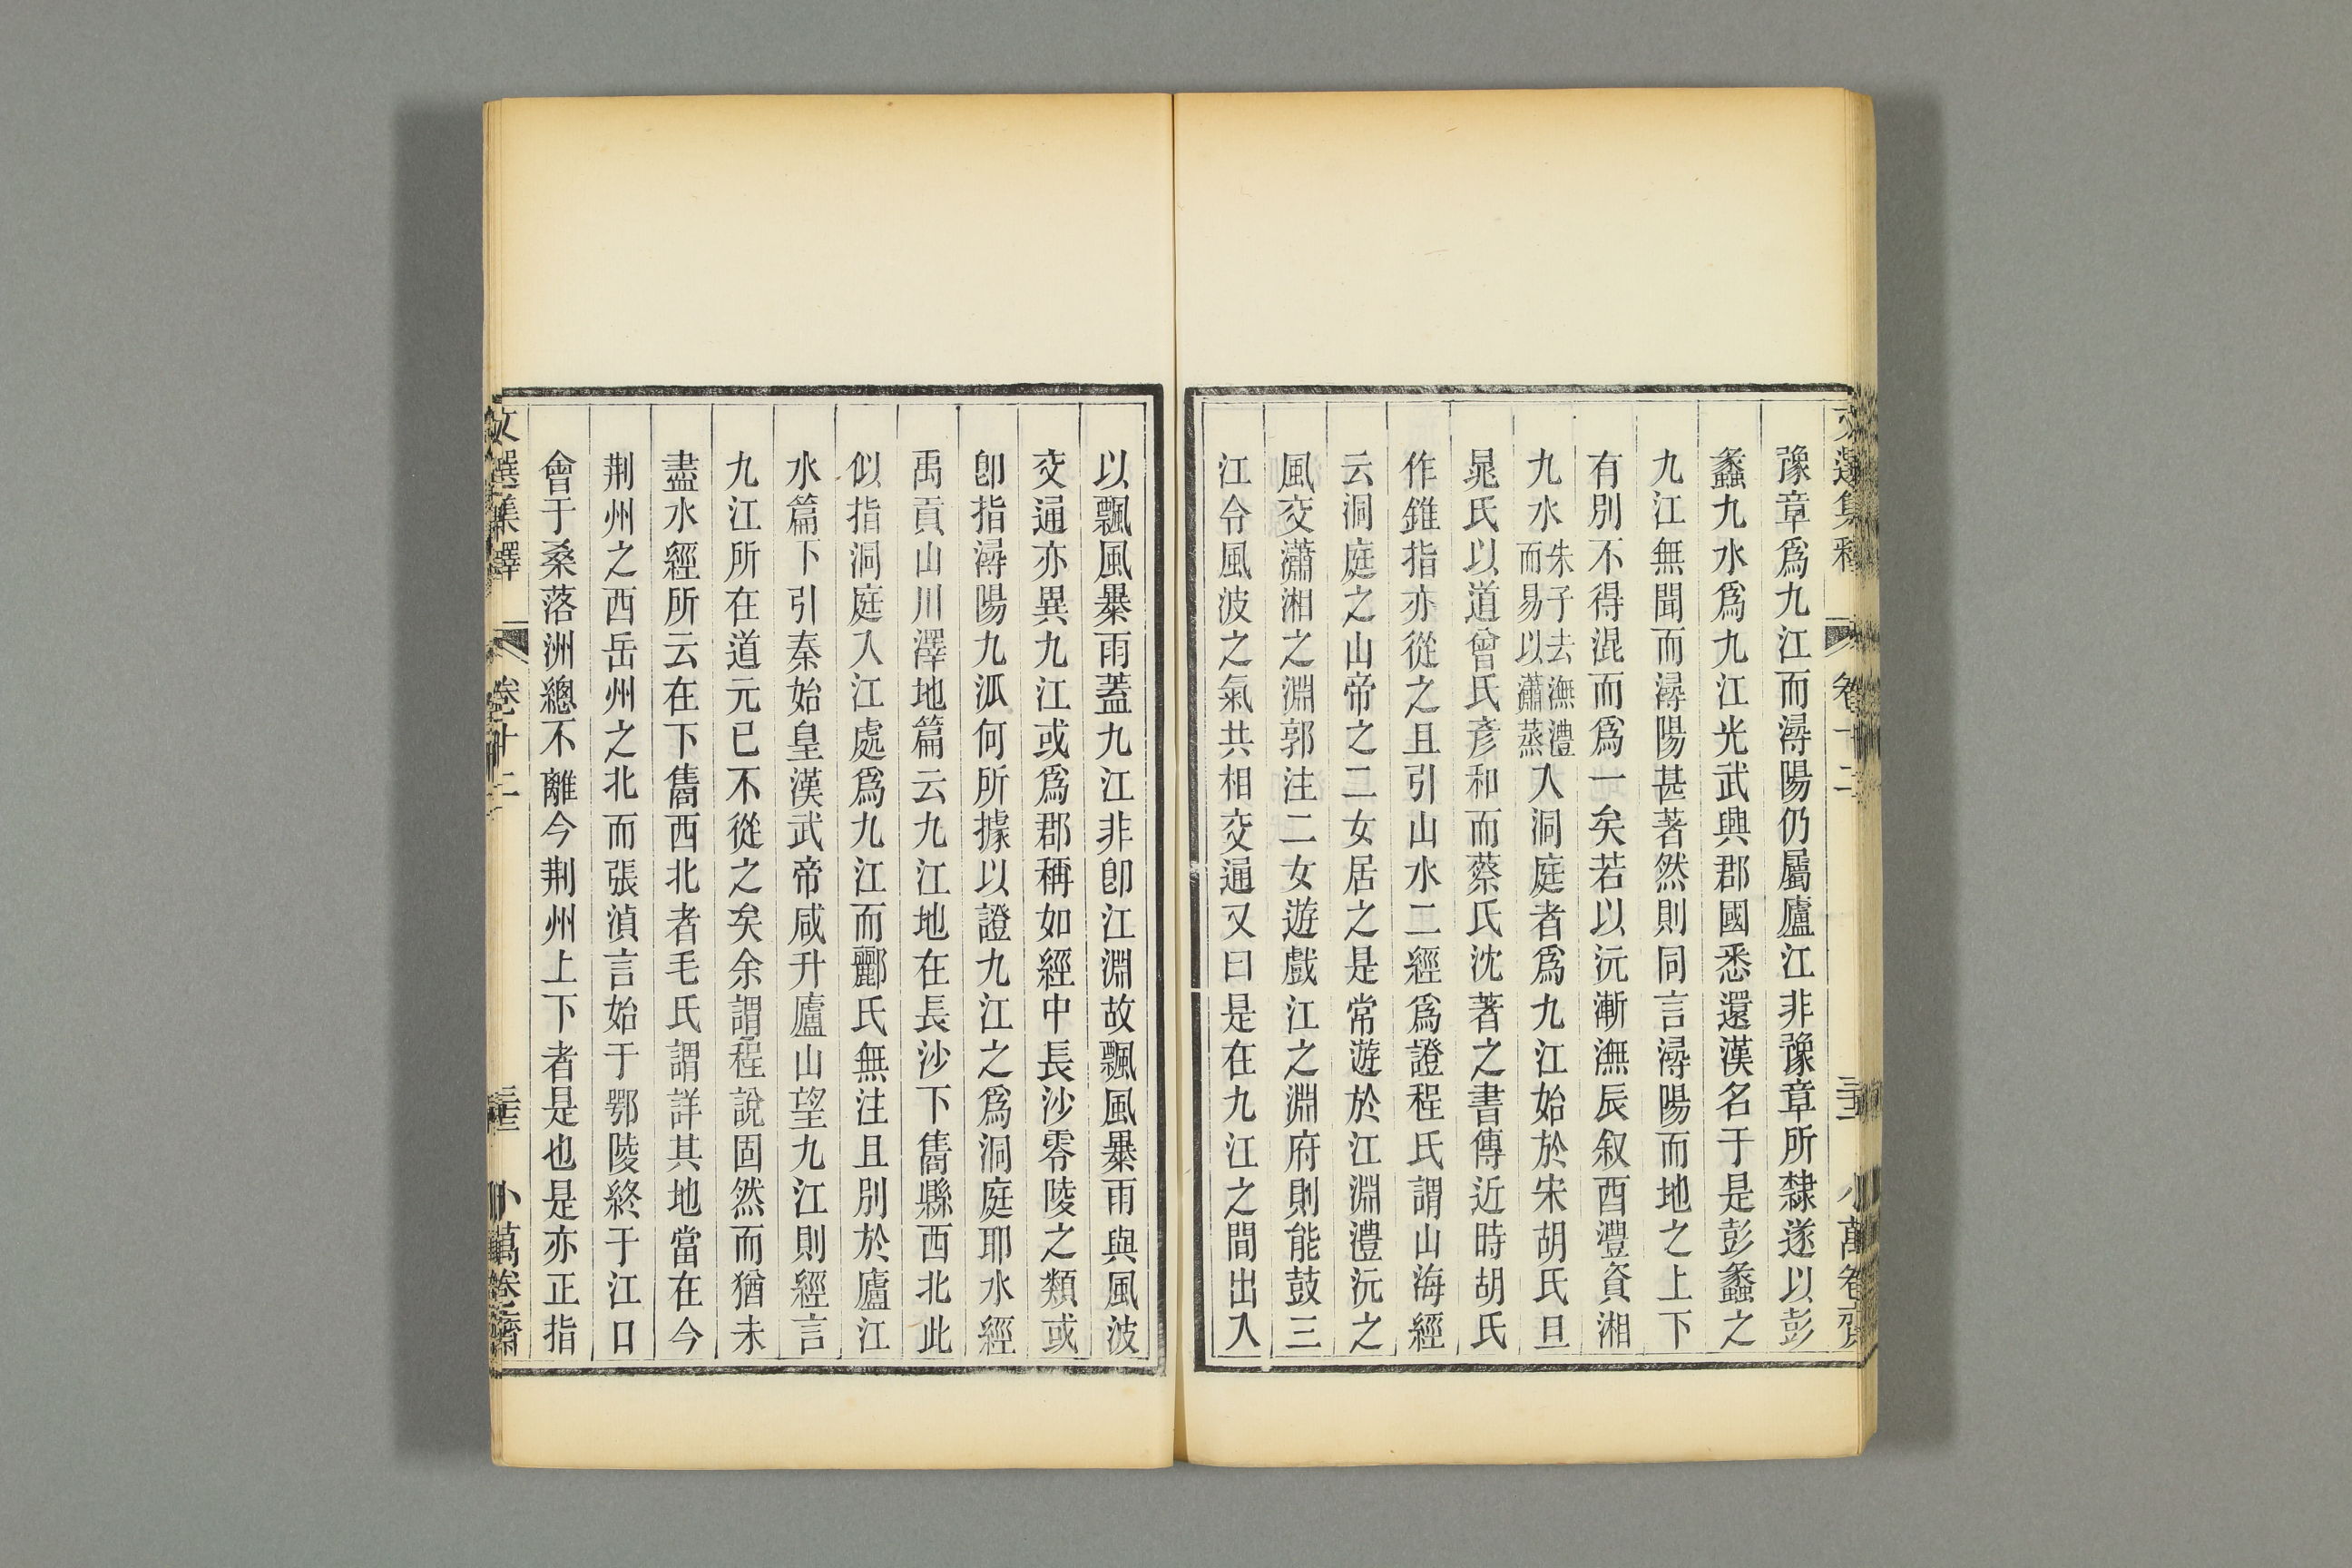 豫章爲九江而潯陽仍屬廬江非豫章所隸遂以彭
蠡九水爲九江光武興郡國悉還漢名于是彭蠡之
九江無聞而潯陽甚著然則同言潯陽而地之上下
有別不得混而爲一矣若以沅漸潕辰叙酉澧資湘
九水朱子去潕澧而易以瀟蒸入洞庭者爲九江始於宋胡氏旦
晁氏以道曾氏彥和而蔡氏沈著之書傳近時胡氏
作錐指亦從之且引山水二經爲證程氏謂山海經
云洞庭之山帝之二女居之是常遊於江淵澧沅之
風交瀟湘之淵郭注二女遊戲江之淵府則能鼓三
江令風波之氣共相交通又曰是在九江之間出入
以飄風暴雨蓋九江非卽江淵故飄風暴雨與風波
交通亦異九江或爲郡稱如經中長沙零陵之類或
卽指潯陽九泒何所據以證九江之爲洞庭耶水經
禹貢山川澤地篇云九江地在長沙下雋縣西北此
似指洞庭入江處爲九江而酈氏無注且別於廬江
水篇下引秦始皇漢武帝咸升廬山望九江則經言
九江所在道元已不從之矣余謂程說固然而猶未
盡水經所云在下雋西北者毛氏謂詳其地當在今
荆州之西岳州之北而張湞言始于鄂陵終于江口
會于桑落洲總不離今荆州上下者是也是亦正指
文選集釋 卷十二 小萬卷齋